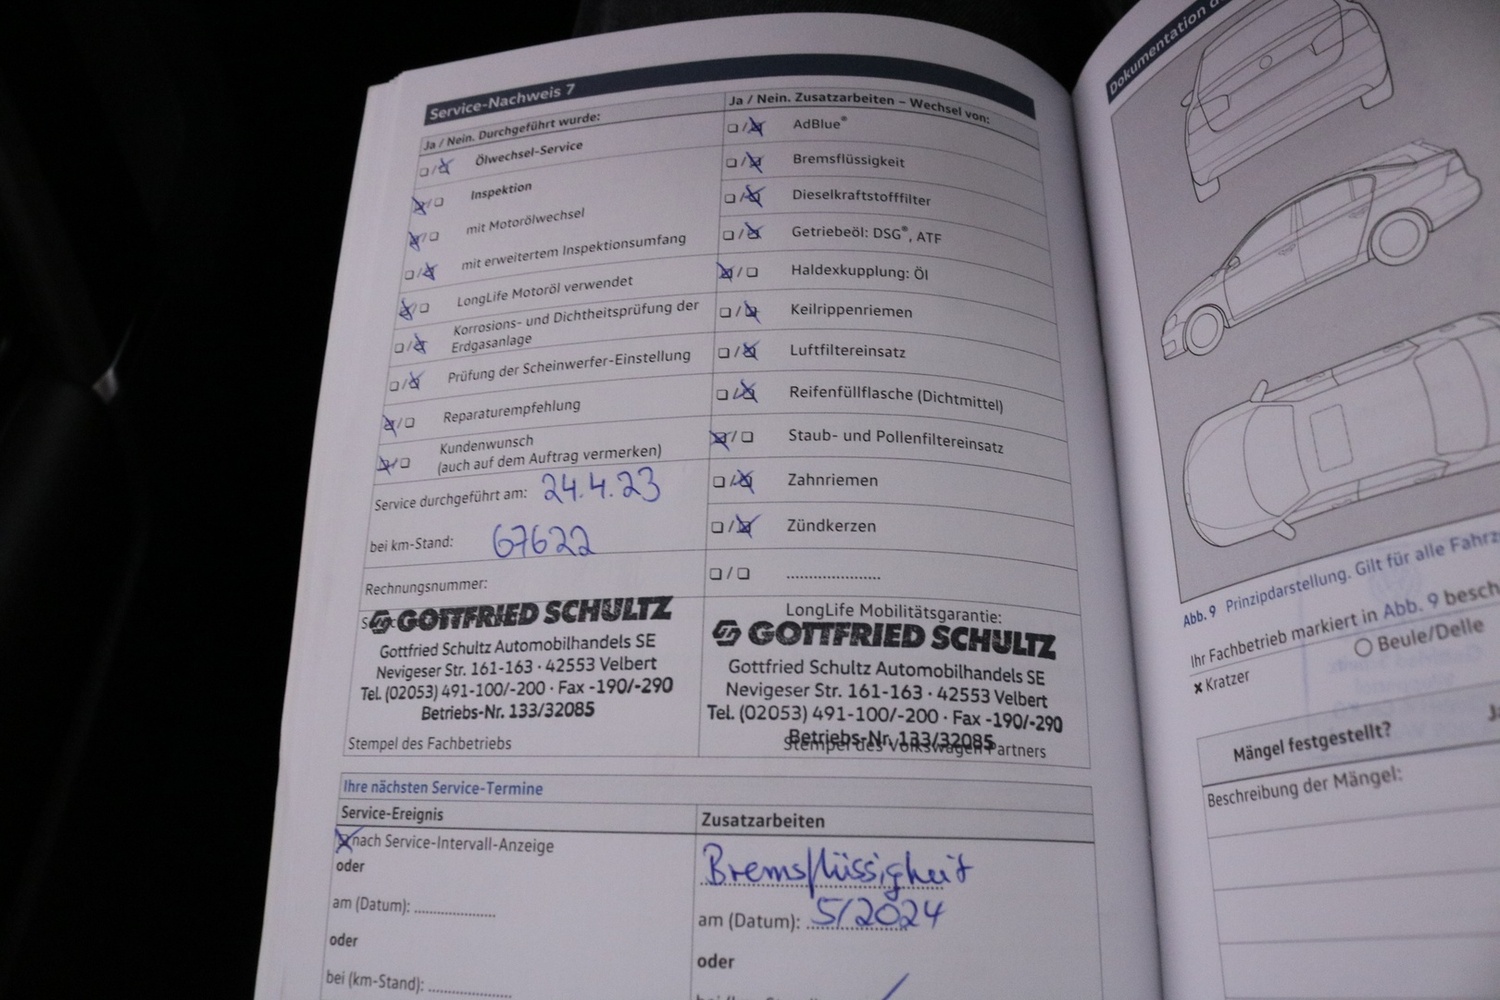 Service-Nachweis 7
Ja / Nein. Durchgeführt wurde:
Ölwechsel-Service
Inspektion
mit Motorölwechsel
mit erweitertem Inspektionsumfang
LongLife Motoröl verwendet
Korrosions- und Dichtheitsprüfung der
Erdgasanlage
Prüfung der Scheinwerfer-Einstellung
Reparaturempfehlung
Kundenwunsch
(auch auf dem Auftrag vermerken)
Service durchgeführt am: 24.4.23
bei km-Stand: 67622
Rechnungsnummer:
GOTTFRIED SCHULTZ
Gottfried Schultz Automobilhandels SE
Nevigeser Str. 161-163 · 42553 Velbert
Tel. (02053) 491-100/-200 · Fax -190/-290
Betriebs-Nr. 133/32085
Stempel des Fachbetriebs
Ja / Nein. Zusatzarbeiten – Wechsel von:
AdBlue®
Bremsflüssigkeit
Dieselkraftstofffilter
Getriebeöl: DSG®, ATF
Haldexkupplung: Öl
Keilrippenriemen
Luftfiltereinsatz
Reifenfüllflasche (Dichtmittel)
Staub- und Pollenfiltereinsatz
Zahnriemen
Zündkerzen
....................
LongLife Mobilitätsgarantie:
GOTTFRIED SCHULTZ
Gottfried Schultz Automobilhandels SE
Nevigeser Str. 161-163 · 42553 Velbert
Tel. (02053) 491-100/-200 · Fax -190/-290
Betriebs-Nr. 133/32085
Stempel des Volkswagen Partners
Ihre nächsten Service-Termine
Service-Ereignis
nach Service-Intervall-Anzeige
oder
am (Datum): ................
oder
bei (km-Stand): ................
Zusatzarbeiten
Bremsflüssigkeit
am (Datum): 5/2024
oder
Dokumentation
Abb. 9 Prinzipdarstellung. Gilt für alle
Ihr Fachbetrieb markiert in Abb. 9
Beule/Delle
x Kratzer
Mängel festgestellt?
Beschreibung der Mängel: